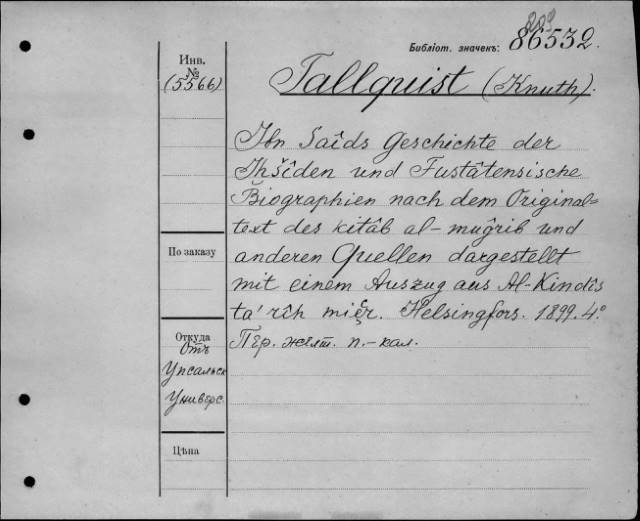 203
Библіот. значекъ: 86532.
Инв.
№
(5566)
Tallquist (Knuth).
Ibn Saîds Geschichte der
Ihšîden und Fustâtensische
Biographien nach dem Original=
text des kitâb al-muġrib und
anderen Quellen dargestellt
mit einem Auszug aus Al-Kindîs
ta'rîh miçr. Helsingfors. 1899. 4°
Пер. жёлт. п.-кал.
По заказу
Откуда
Отъ
Упсальск
Универс.
Цѣна